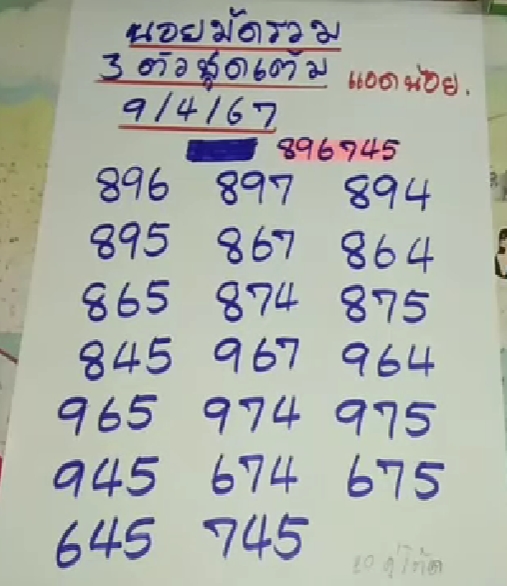 นอยมัดรวม
3 ตัวชุดเต็ม แอดน้อย.
9/4/67
896745
896 897 894
895 867 864
865 874 875
845 967 964
965 974 975
945 674 675
645 745
20 คู่โต๊ด